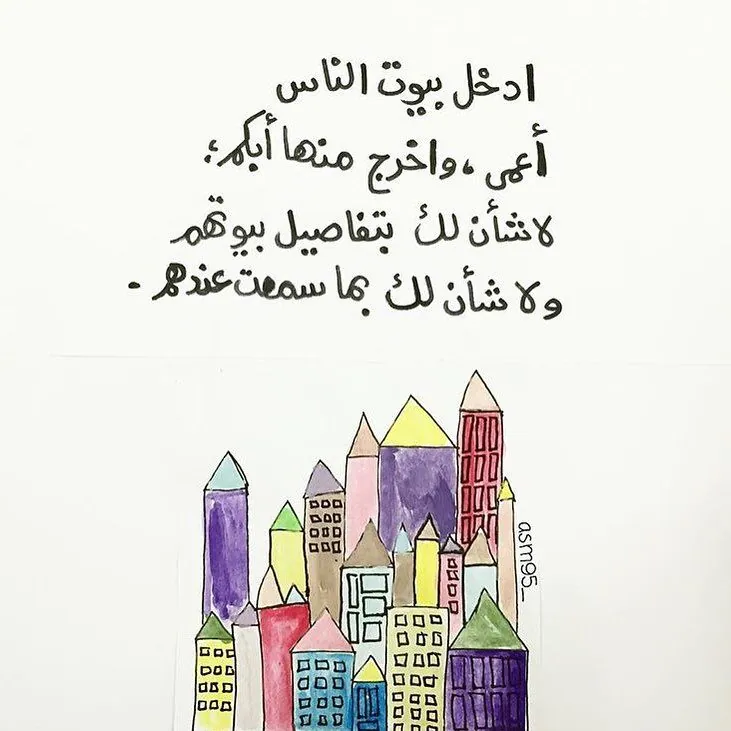 ادخل بيوت الناس
أعمى ،واخرج منها أبكم؛
لا شأن لك بتفاصيل بيوتهم
ولا شأن لك بما سمعت عندهم .
asm95_